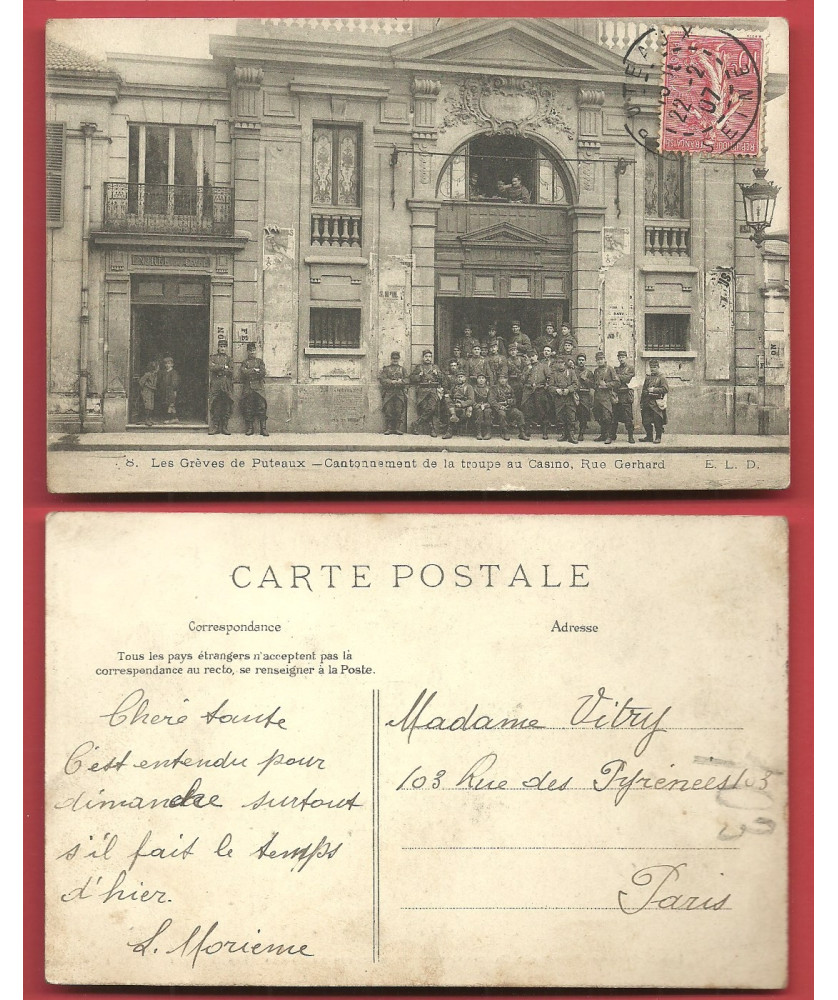 PUTEAUX
22-2
07
SEINE
RÉPUBLIQUE FRANÇAISE
ENTRÉE
8. Les Grèves de Puteaux — Cantonnement de la troupe au Casino, Rue Gerhard E. L. D.
CARTE POSTALE
Correspondance
Adresse
Tous les pays étrangers n'acceptent pas la
correspondance au recto, se renseigner à la Poste.
Chere tante
C'est entendu pour
dimanche surtout
s'il fait le temps
d'hier.
Madame Vitry
103 Rue des Pyrénées 103
103
Paris